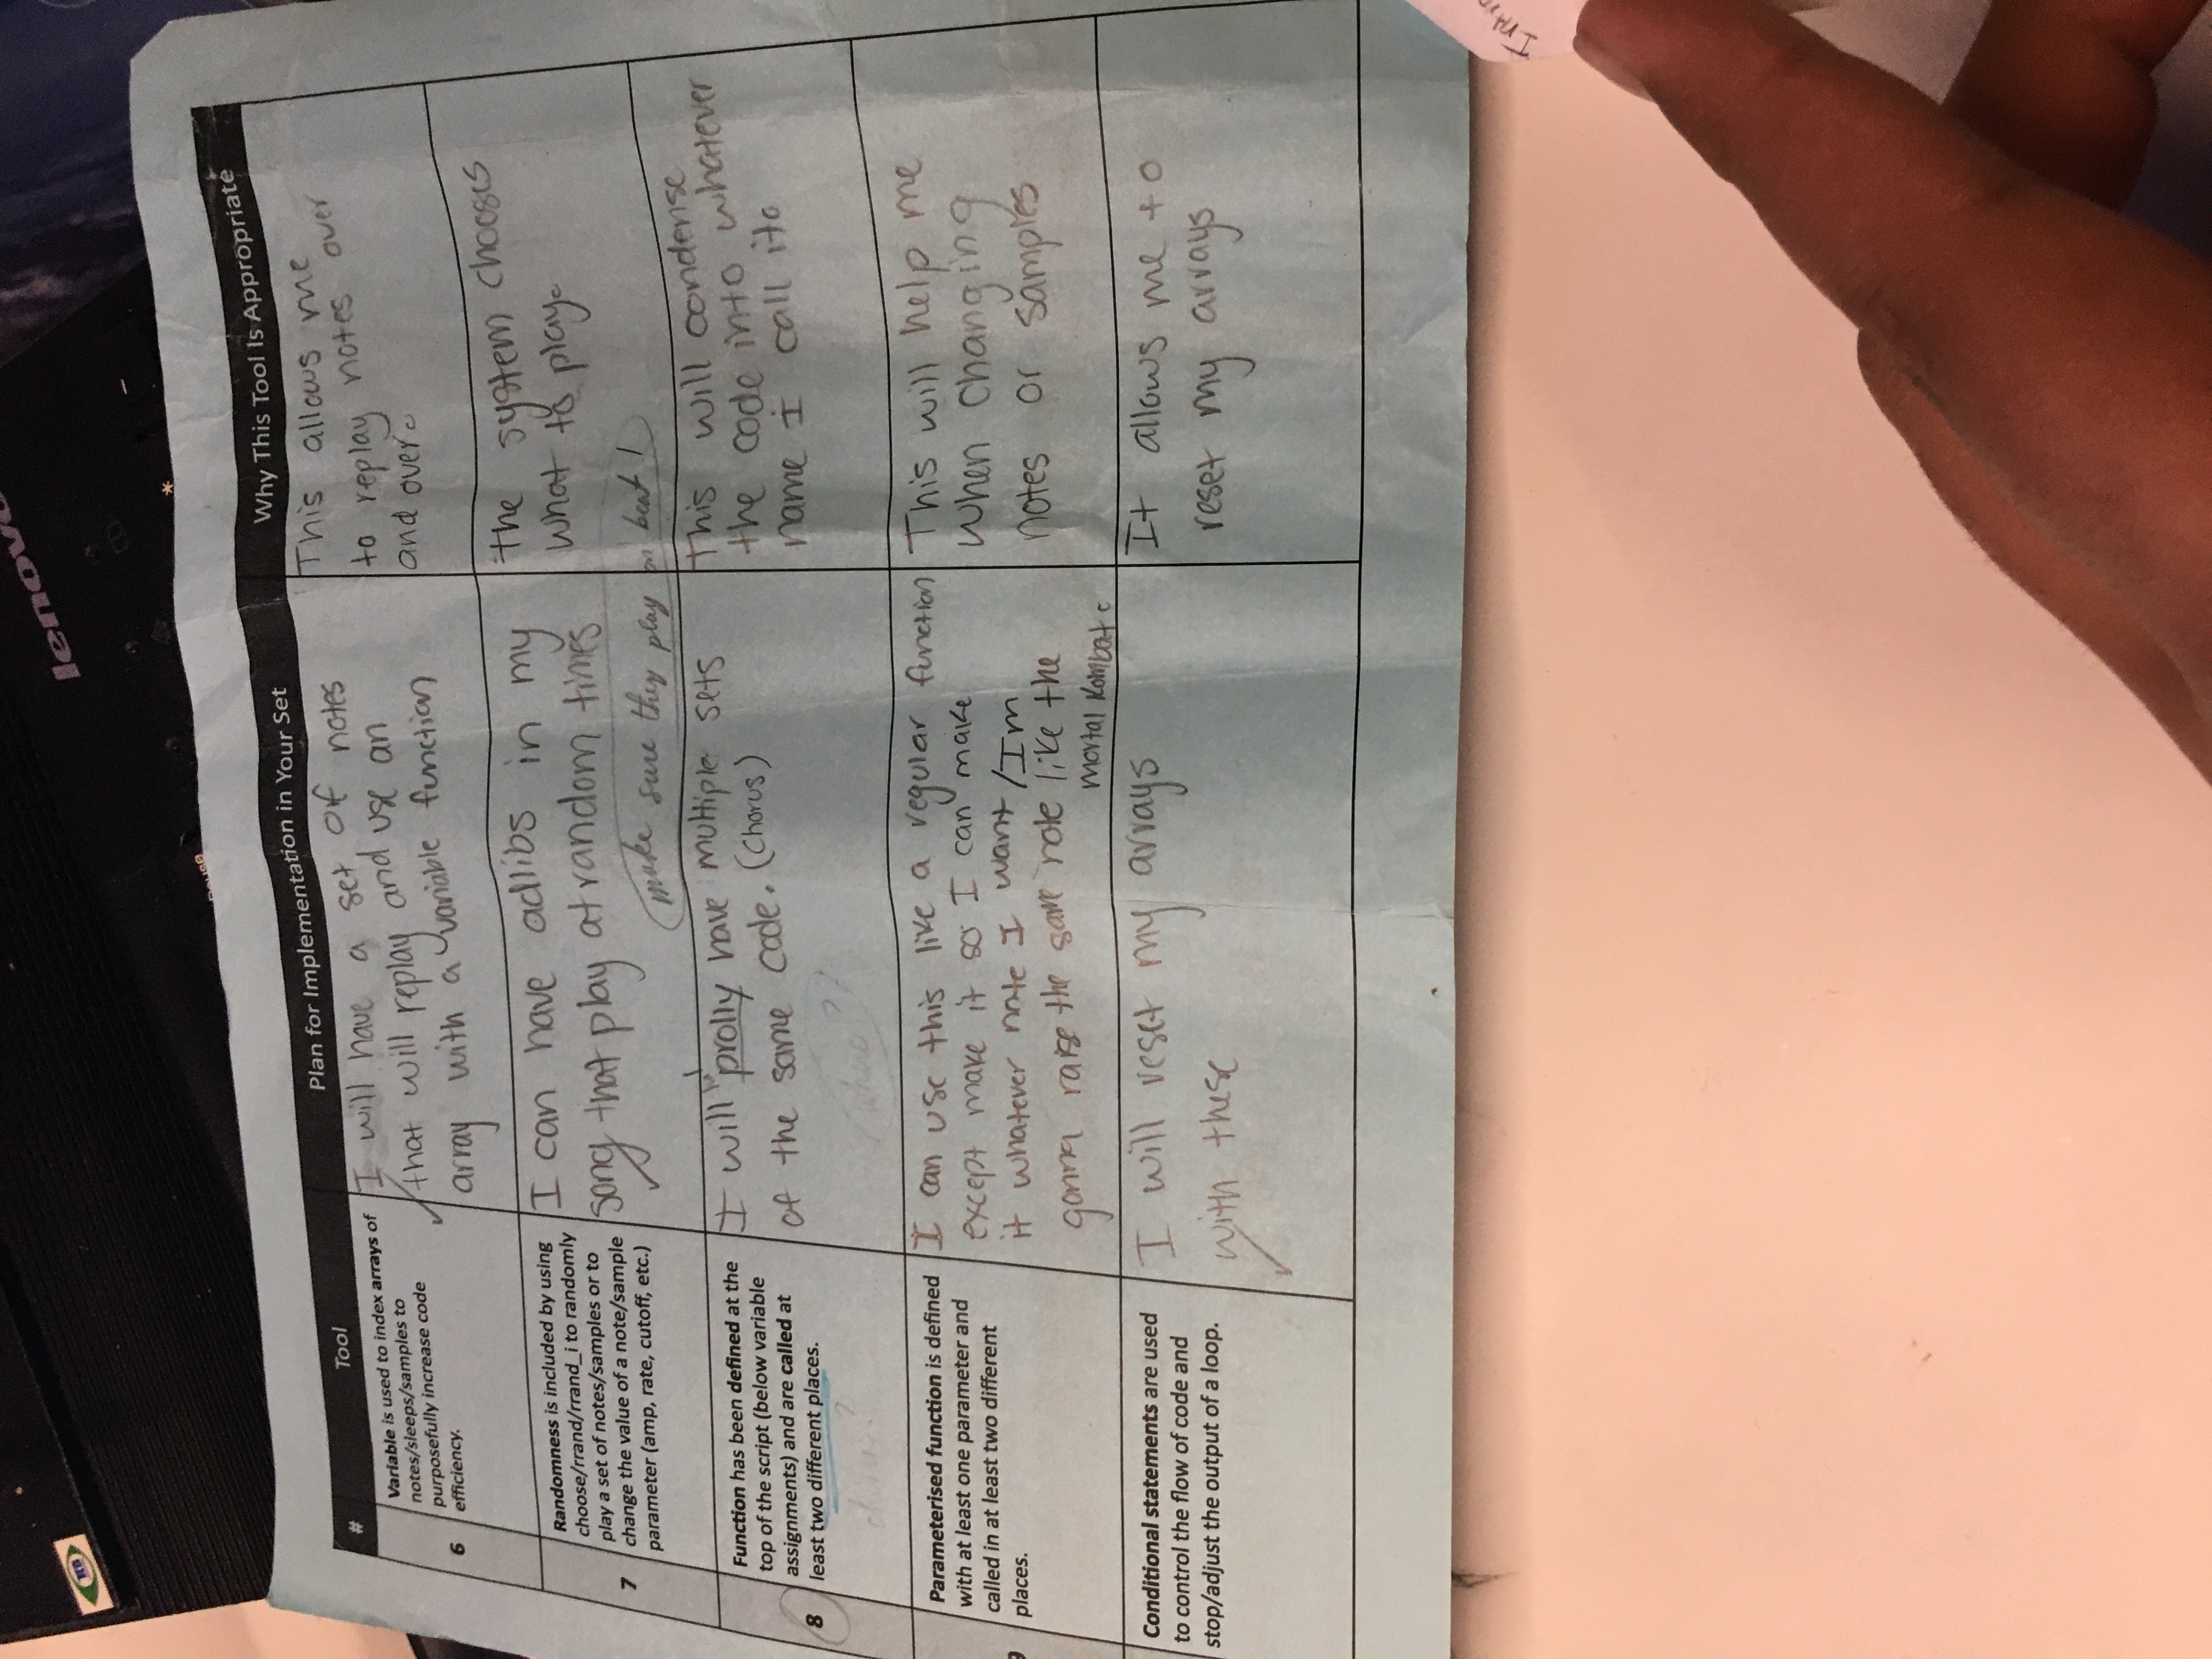 lenovo
RB
Pause
*
#
Tool
Plan for Implementation in Your Set
Why This Tool Is Appropriate
6
Variable is used to index arrays of
notes/sleeps/samples to
purposefully increase code
efficiency.
I will have a set of notes
that will replay and use an
array with a variable function
This allows me
to replay notes over
and over.
7
Randomness is included by using
choose/rrand/rrand_i to randomly
play a set of notes/samples or to
change the value of a note/sample
parameter (amp, rate, cutoff, etc.)
I can have adlibs in my
song that play at random times
make sure they play on beat!
the system chooses
what to play.
8
Function has been defined at the
top of the script (below variable
assignments) and are called at
least two different places.
chorus?
I will prolly have multiple sets
of the same code. (Chorus)
where?
This will condense
the code into whatever
name I call it.
9
Parameterised function is defined
with at least one parameter and
called in at least two different
places.
I can use this like a regular function
except make it so I can make
it whatever note I want / Im
gonna raise the same note like the
mortal Kombat.
This will help me
when changing
notes or samples
Conditional statements are used
to control the flow of code and
stop/adjust the output of a loop.
I will reset my arrays
with these
It allows me to
reset my arrays